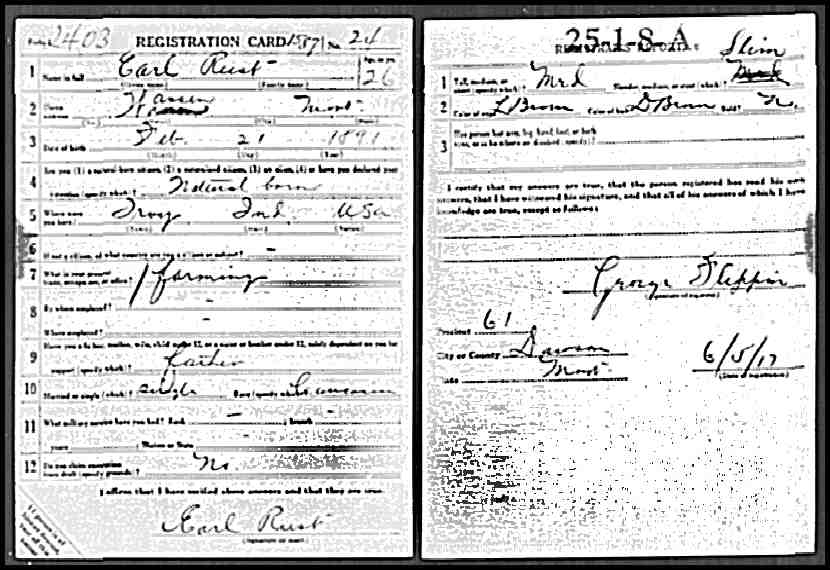 2403 REGISTRATION CARD No. 24
1 Name in full Earl Rust 26
(Given name) (Family name) Age, in yrs.
2 Home address Mont.
3 Date of birth Feb. 21 1891
(Month) (Day) (Year)
4 Are you (1) a natural-born citizen, (2) a naturalized citizen, (3) an alien, (4) or have you declared your
intention (specify which)? Natural born
5 Where were you born? Troy Ind USA
(Town) (State) (Nation)
6 If not a citizen, of what country are you a citizen or subject? -
7 What is your present trade, occupation, or office? farming
8 By whom employed? -
Where employed? -
9 Have you a father, mother, wife, child under 12, or a sister or brother under 12, solely dependent on you for
support (specify which)? father
10 Married or single (which)? single Race (specify which)? Caucasian
11 What military service have you had? Rank - branch -
years - Nation or State -
12 Do you claim exemption from draft (specify grounds)? No
I affirm that I have verified above answers and that they are true.
Earl Rust
(Signature or mark)
25-1-8-A
REGISTRAR'S REPORT
1 Tall, medium, or short (specify which)? Med Slender, medium, or stout (which)? Slim
2 Color of eyes L Brown Color of hair D Brown Bald? No
3 Has person lost arm, leg, hand, foot, or both
eyes, or is he otherwise disabled (specify)?
I certify that my answers are true, that the person registered has read his own
answers, that I have witnessed his signature, and that all of his answers of which I have
knowledge are true, except as follows:
George
(Signature of registrar)
Precinct 61
City or County Dawson
State Mont 6/5/17
(Date of registration)